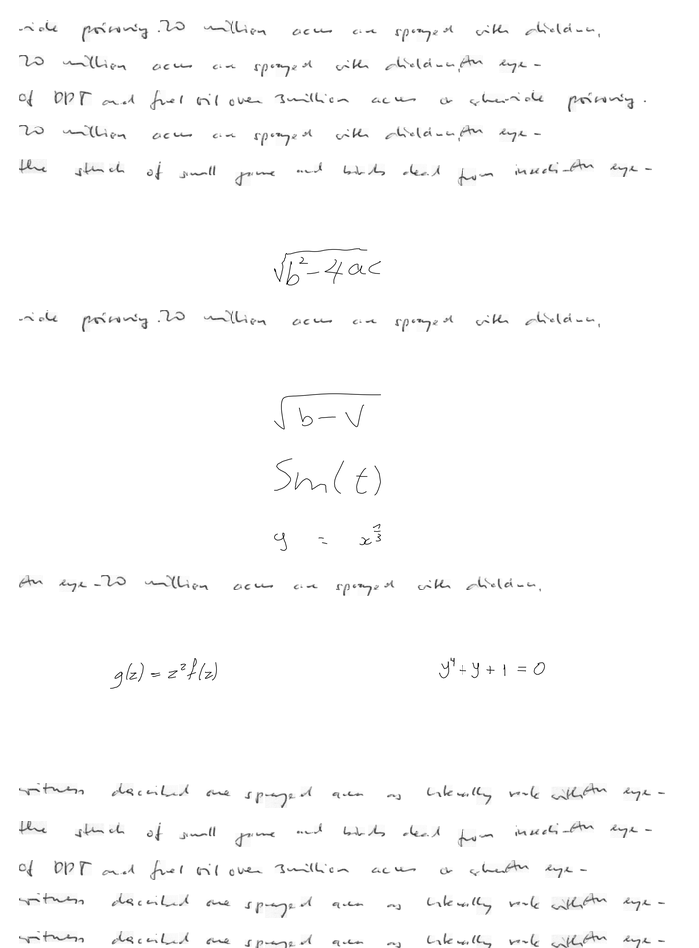 -cide poisoning. 20 million acres are sprayed with dieldrin.
20 million acres are sprayed with dieldrin. An eye-
of DDT and fuel oil over 3 million acres a whe-cide poisoning.
20 million acres are sprayed with dieldrin. An eye-
the stench of small game and birds dead from insecti-An eye-
√(b²-4ac)
-cide poisoning. 20 million acres are sprayed with dieldrin.
√(b-v)
Sm(t)
y = x^(1/3)
An eye-20 million acres are sprayed with dieldrin.
g(z) = z²f(z) y⁴-y+1=0
witness described one sprayed area as literally reek with An eye-
the stench of small game and birds dead from insecti-An eye-
of DDT and fuel oil over 3 million acres a An eye-
witness described one sprayed area as literally reek with An eye-
witness described one sprayed area as literally reek with An eye-